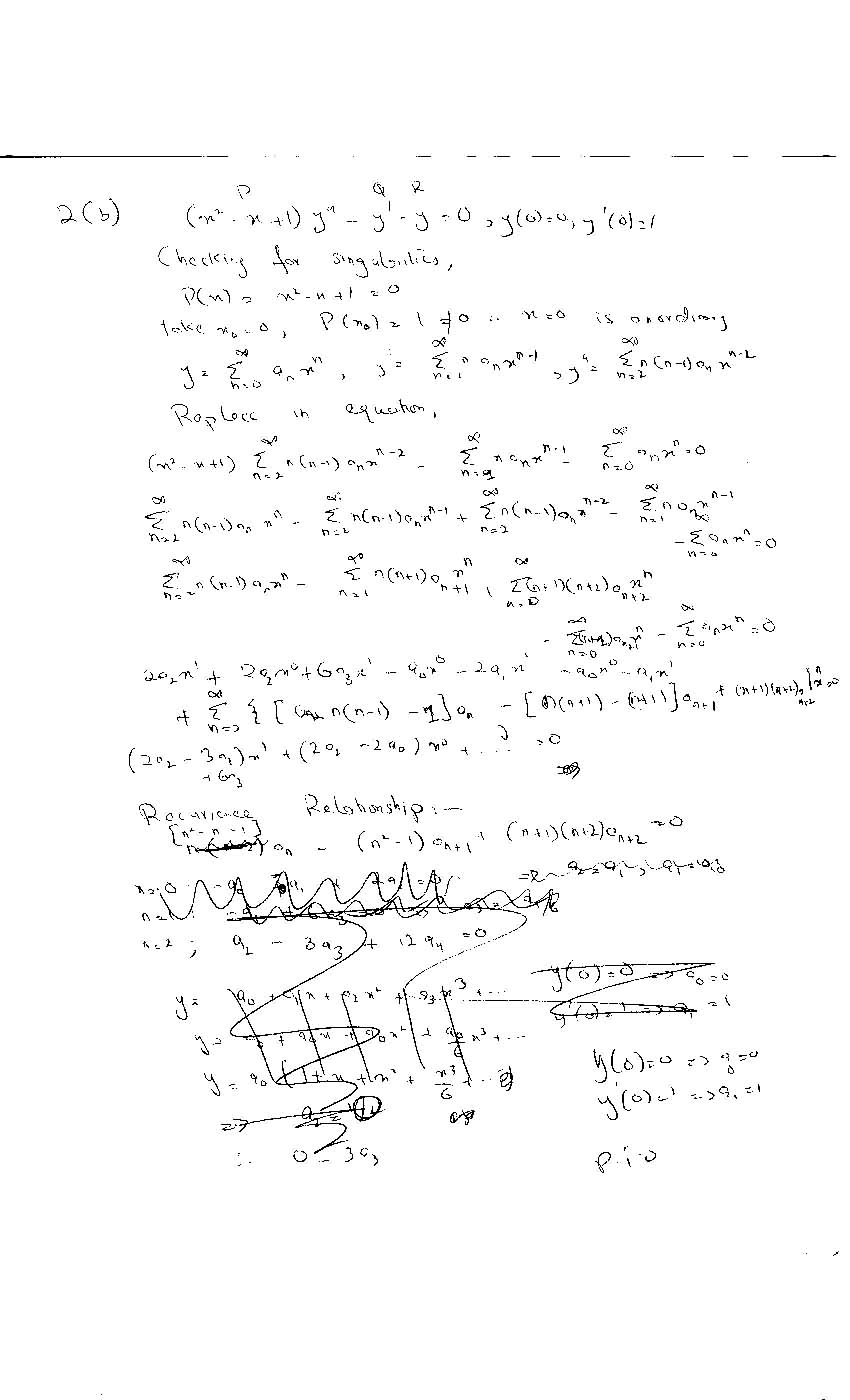 P Q R
2(b) (x² - x + 1) y" - y' - y = 0, y(0)=0, y'(0)=1
Checking for singularities,
P(x) = x² - x + 1 = 0
take x₀ = 0, P(x₀) = 1 ≠ 0 ∴ x=0 is
y = ∑_{n=0}^{∞} aₙxⁿ, y' = ∑_{n=1}^{∞} n aₙxⁿ⁻¹, y" = ∑_{n=2}^{∞} n(n-1) aₙ xⁿ⁻²
Replace in equation,
(x² - x + 1) ∑_{n=2}^{∞} n(n-1) aₙxⁿ⁻² - ∑ n aₙxⁿ⁻¹ - ∑_{n=0}^{∞} aₙxⁿ = 0
∑_{n=2}^{∞} n(n-1)aₙ xⁿ - ∑_{n=2}^{∞} n(n-1)aₙxⁿ⁻¹ + ∑_{n=2}^{∞} n(n-1)aₙxⁿ⁻² - ∑_{n=1}^{∞} n aₙxⁿ⁻¹
- ∑_{n=0}^{∞} aₙxⁿ = 0
∑_{n=2}^{∞} n(n-1) aₙxⁿ - ∑_{n=1}^{∞} n(n+1) aₙ₊₁ xⁿ + ∑_{n=0}^{∞} (n+1)(n+2) aₙ₊₂ xⁿ
- ∑_{n=0}^{∞} aₙxⁿ = 0
2a₂x¹ + 2a₂x⁰ + 6a₃x¹ - a₀x⁰ - 2a₁x¹ - a₀x⁰ - a₁x¹
+ ∑ { [ n(n-1) - 1] aₙ - [n(n+1) - (n+1)] aₙ₊₁ + (n+1)(n+2) aₙ₊₂ } xⁿ = 0
(2a₂ - 3a₁) x¹ + (2a₂ - 2a₀) x⁰ + ... = 0
+ 6a₃
Recurrence Relationship :-
[n² - n - 1] aₙ - (n² - 1) aₙ₊₁ + (n+1)(n+2) aₙ₊₂ = 0
n=0
n=2 ; a₂ - 3a₃ + 12a₄ = 0
y = a₀ + a₁x + a₂x² + a₃x³ + ...
y(0)=0 => a₀ = 0
y'(0)=1 => a₁ = 1
y = a₀ + a₀x + a₀x² + a₀/6 x³ + ...
y = a₀ (1 + x + x² + x³/6 + ...)
y(0)=0 => a₀=0
y'(0)=1 => a₁ = 1
∴ 0 - 3a₃